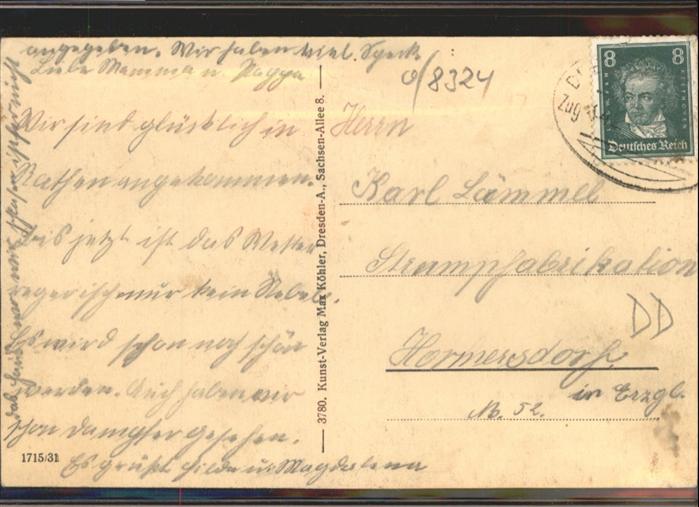 angegeben. Wir haben viel Speck
Liebe Mamma u. Pappa
Wir sind glücklich in
Rathen angekommen.
Bis jetzt ist das Wetter
regerisch nur kein Nebel.
Es wird schon noch schön
werden. Auch haben wir
schon Dampfer gesehen.
Es grüßt Hilde u. Magdalena
1715/31
3780. Kunst-Verlag Max Köhler, Dresden-A., Sachsen-Allee 8.
8324
8 8
Deutsches Reich
Zug
Herrn
Karl Lämmel
Strumpfabrikation
Hormersdorf.
in Erzgb.
No. 52.
DD